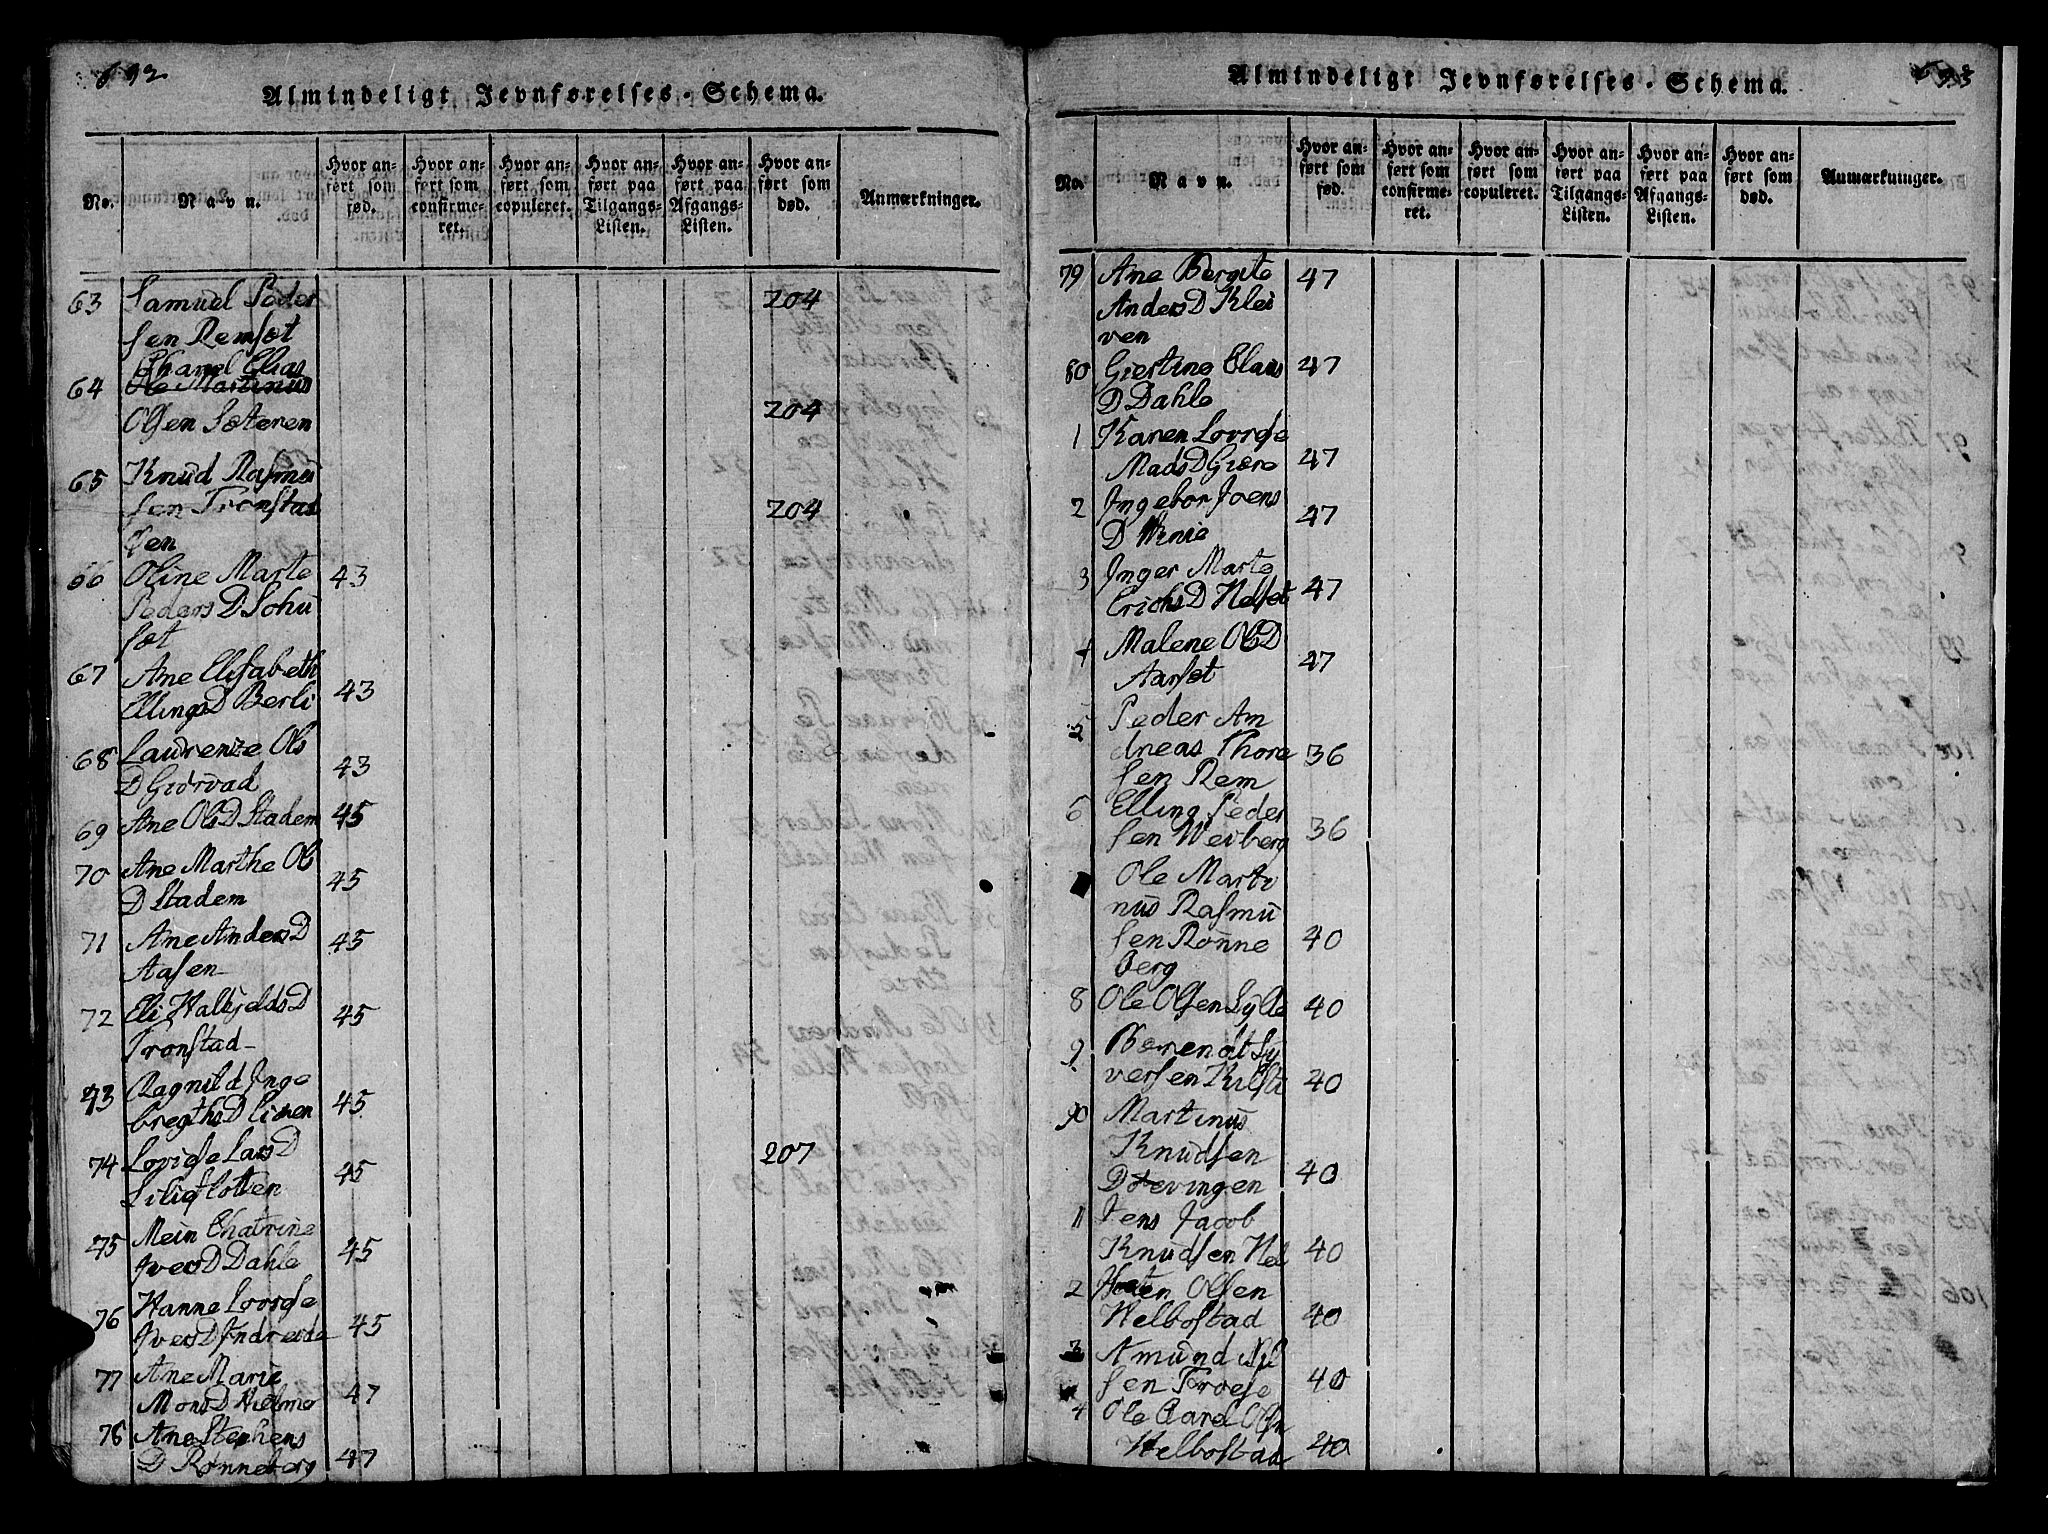 692
Almindeligt Jevnførelses-Schema.
No.
Navn.
Hvor anført som fød.
Hvor anført som confirmeret.
Hvor anført som copuleret.
Hvor anført paa Tilgangs-Listen.
Hvor anført paa Afgangs-Listen.
Hvor anført som død.
Anmærkninger.
63 Samuel Peder 204
sen Remsæt
Chanel Elias
64 Ole Martinus
Olsen Sæteren 204
65 Knud Rasmu
sen Tronstad 204
øen
66 Oline Marte 43
Peders D Sohu
sæt
67 Ane Elisabeth
Ellings D Berli 43
68 Laurenze Ols
D Giørvad 43
69 Ane Ols D Stadem 45
70 Ane Marthe Ols
D Stadem 45
71 Ane Anders D 45
Aasen
72 Eli Halkjelds D 45
Tronstad
73 Ragnild Inge
bregths D Limen 45
74 Lovise Lars D 207
Silieflotten 45
75 Mein Chatrine
Ivers D Dahle 45
76 Hanne Lovise
Ivers D Indreeide 45
77 Ane Marie
Mons D Hielme 47
78 Ane Stephens
D Rønneberg 47
Almindeligt Jevnførelses-Schema.
No.
Navn.
Hvor anført som fød.
Hvor anført som confirmeret.
Hvor anført som copuleret.
Hvor anført paa Tilgangs-Listen.
Hvor anført paa Afgangs-Listen.
Hvor anført som død.
Anmærkninger.
79 Ane Bergite 47
Anders D Klei
ven
80 Giertine Claus 47
D Dahle
1 Karen Lovise
Mads D Giære 47
2 Ingebor Joens 47
D
3 Inger Marte
Erichs D Helset 47
4 Malene Ols D
Aarsæt 47
5 Peder An
dreas Thore 36
sen Rem
6 Elling Peder
sen Weiberg 36
Ole Marti
nus Rasmu
sen Rønne 40
berg
8 Ole Olsen Sylte 40
9 Berendt Sy
versen Kilsti 40
90 Martinus
Knudsen
Døevingen 40
11 Jens Jacob
Knudsen Hel 40
2 Olsen
Welbostad 40
3 Amund Nil
sen Froese 40
4 Ole Carel Olsn
Welbostad 40